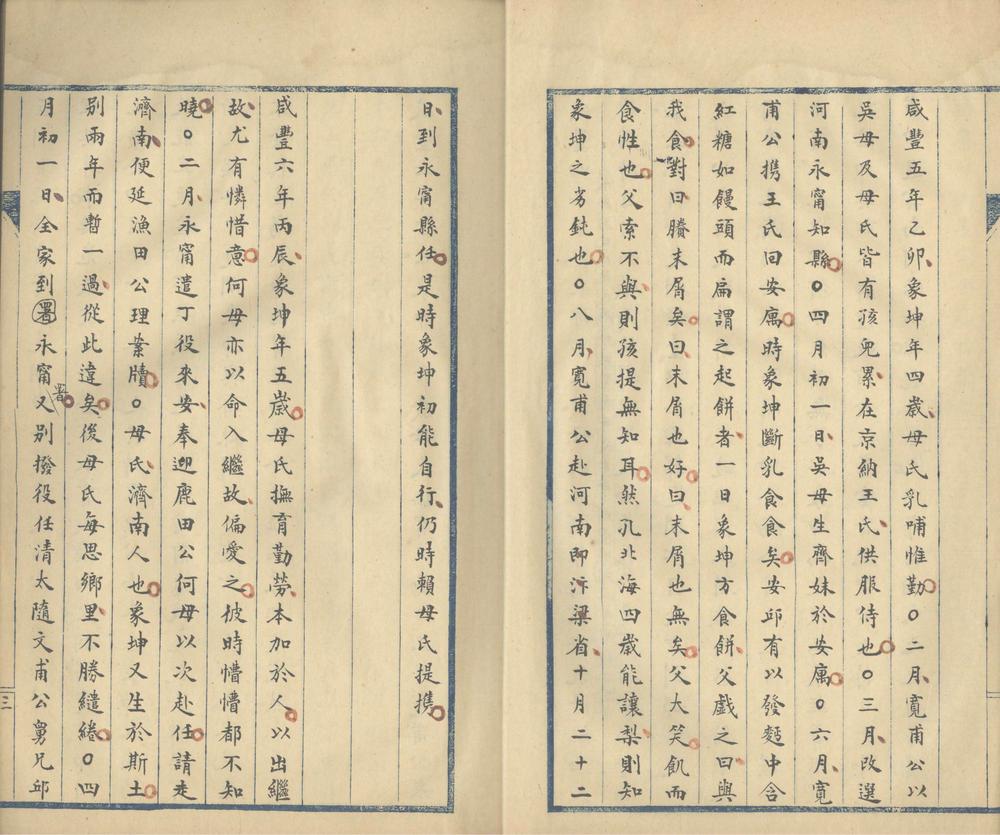 咸豐五年乙卯象坤年四歲母氏乳哺惟勤〇二月寬甫公以
吳母及母氏皆有孩兒累在京納王氏供服侍也〇三月改選
河南永甯知縣〇四月初一日吳母生齊妹於安寓〇六月寬
甫公携王氏回安寓時象坤斷乳食食矣安邱有以發麵中含
紅糖如饅頭而扁謂之起餅者一日象坤方食餅父戲之曰與
我食對曰賸末屑矣曰末屑也好曰末屑也無矣父大笑飢而
食性也父索不與則孩提無知耳然孔北海四歲能讓梨則知
象坤之劣鈍也〇八月寬甫公赴河南即汴梁省十月二十二
日到永甯縣任是時象坤初能自行仍時賴母氏提携
咸豐六年丙辰象坤年五歲母氏撫育勤勞本加於人以出繼
故尤有憐惜意何母亦以命入繼故偏愛之彼時懵懵都不知
曉〇二月永甯遣丁役來安奉迎鹿田公何母以次赴任請走
濟南便延漁田公理案牘〇母氏濟南人也象坤又生於斯土
别兩年而暫一過從此違矣後母氏每思鄉里不勝繾綣〇四
月初一日全家到署永甯又别撥役任清太隨文甫公舅兄邱
署
三